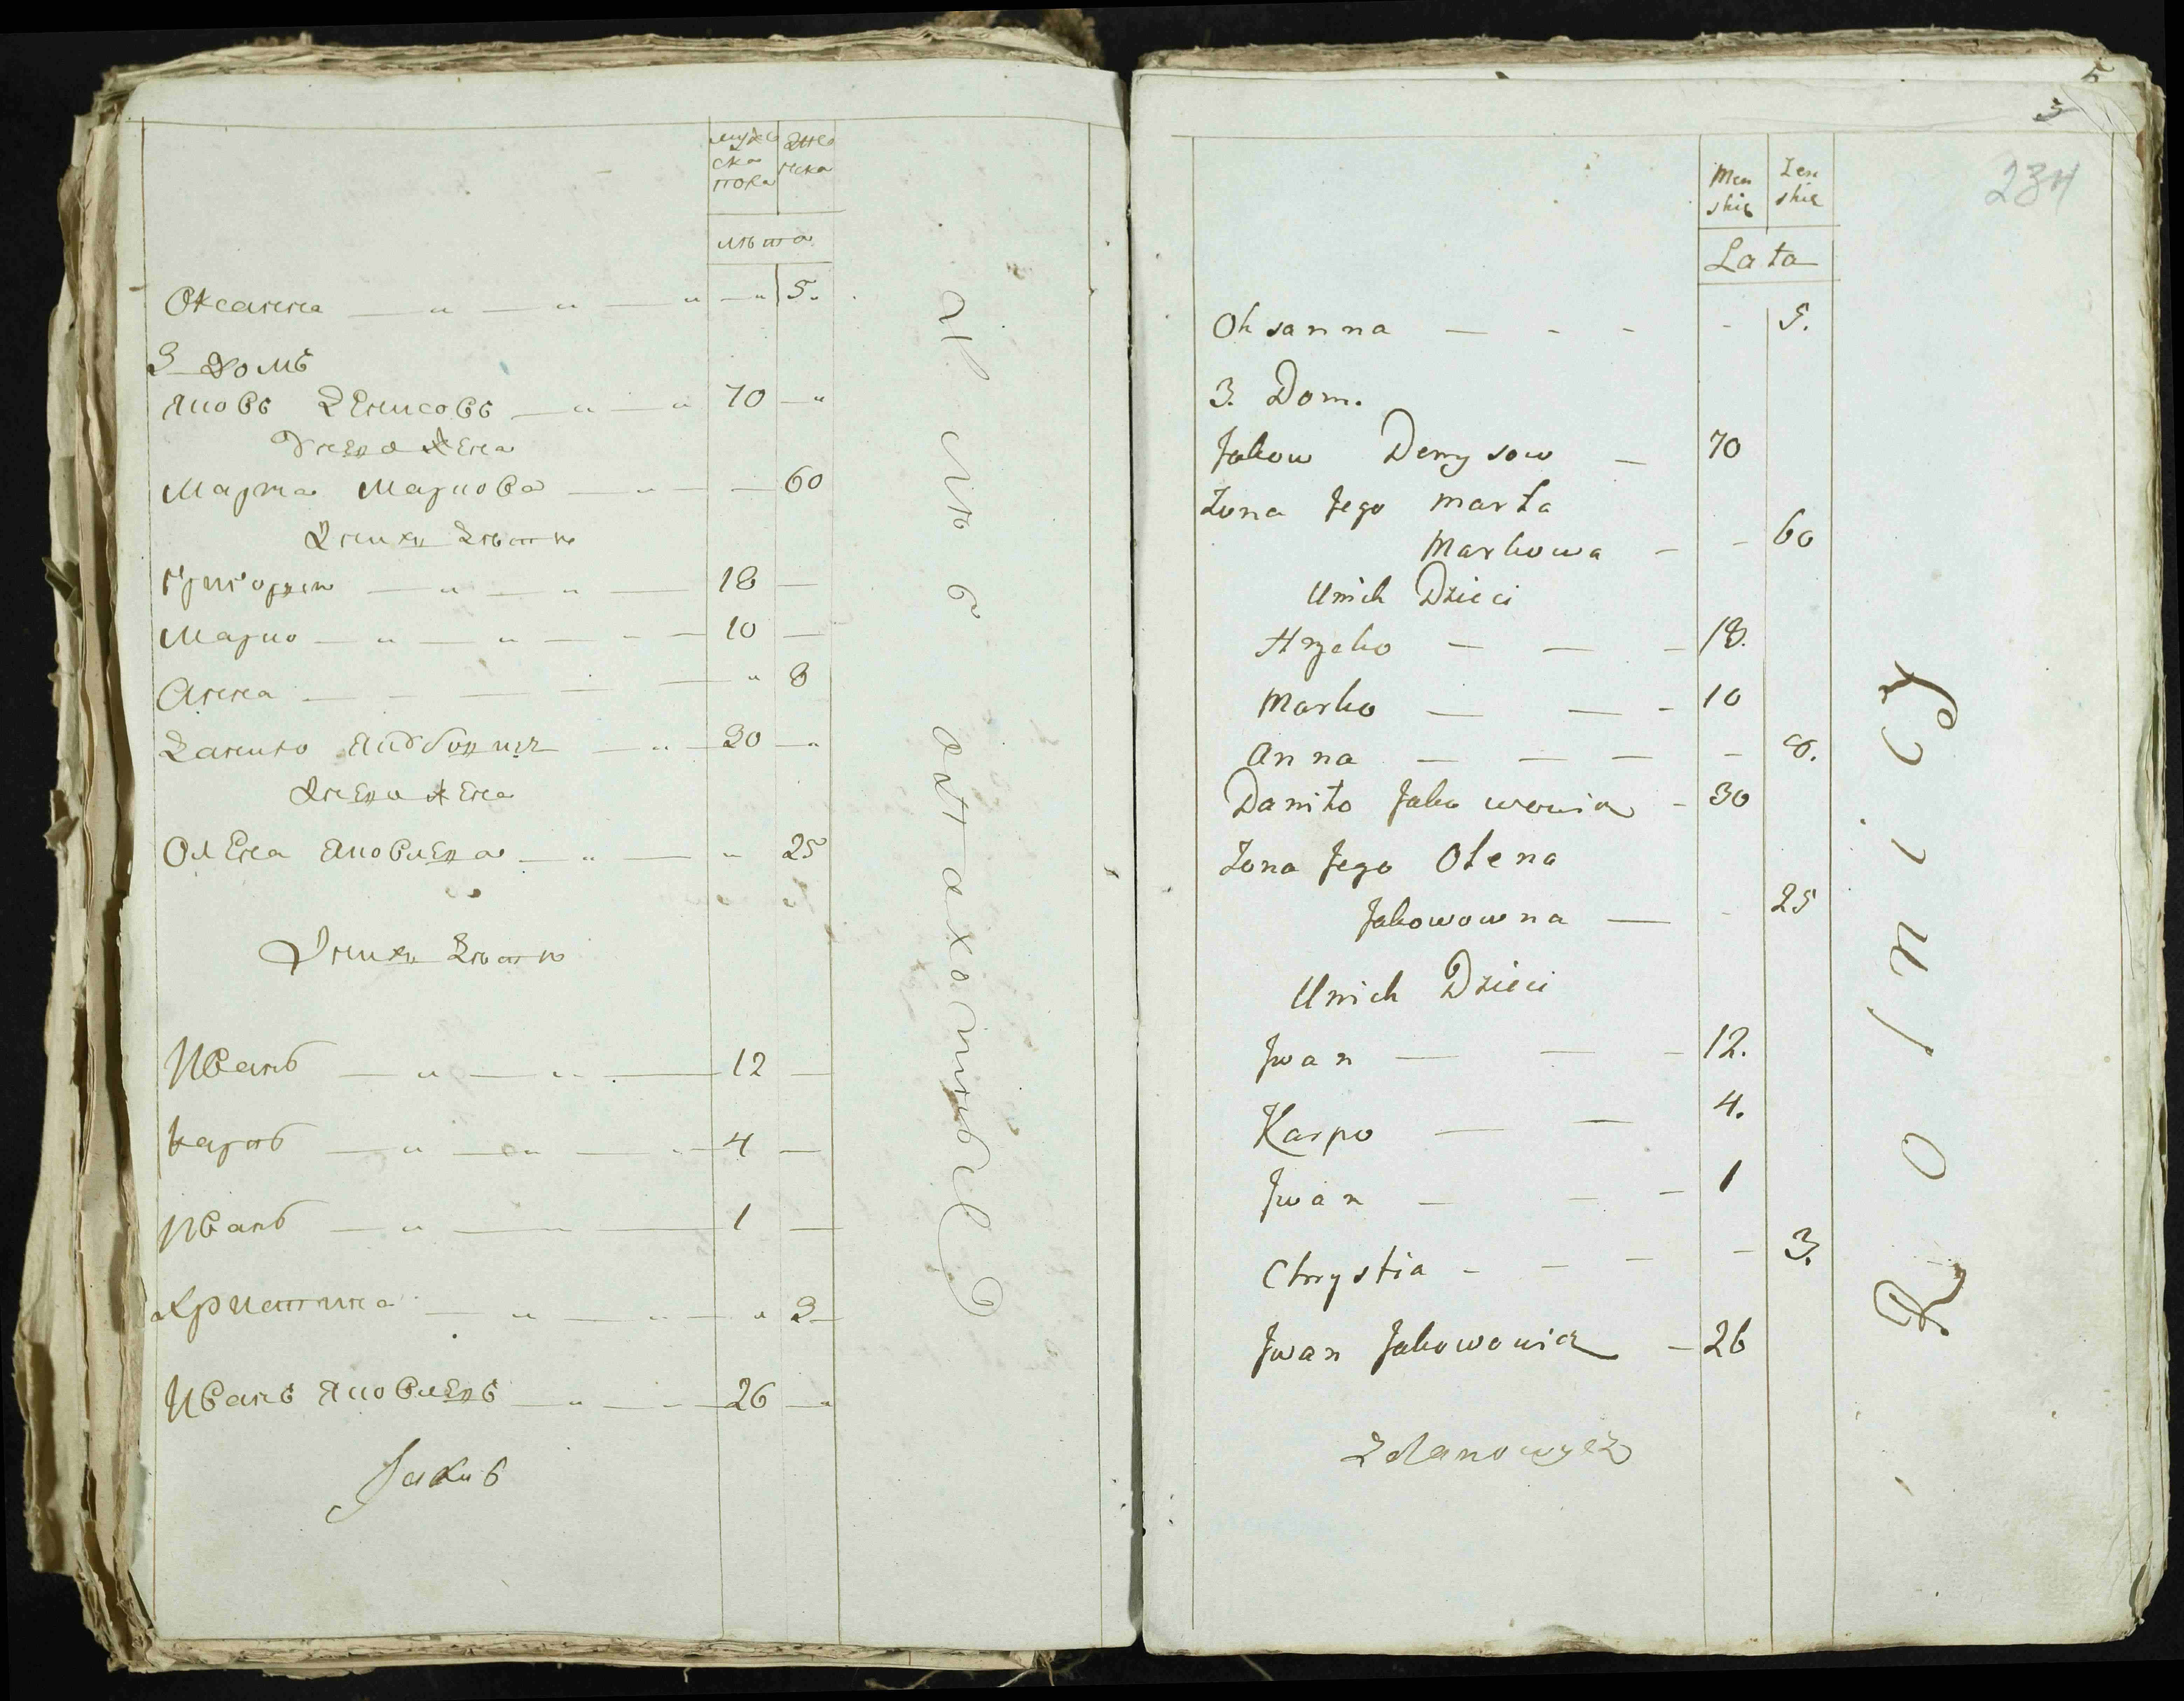 мужеска пола
женска
лѣта
Оксанна — " — " — " — " 5.
3 домъ
Яковъ Денисовъ — " — " 70 — "
У него жена
Марта Маркова — " — — 60
У нихъ дѣти
Григорей — " — " — 18 —
Марко — " — " — — — 10 —
Анна — — — — — " 8
Данило — " 30 — "
У него жена
Олена Яковлева — " — " 25
У нихъ дѣти
Иванъ — " — " — 12 —
Карпъ — " — " — " 4 —
Иванъ — " — — 1 —
Християна — " — " — " 3
Иванъ Яковлевъ — " — — 26 — "
5
3
234
Men
skie
Zen
skie
Lata
Oksanna — - - - 5.
3. Dom.
Jakow Denysow — 70
Zona Jego Marta
Markowa - - 60
Unich Dzieci
Hryćko — — — 18.
Marko — — - 10
Anna — — — — 8.
Daniło Jakowowicz - 30
Zona Jego Ołena
Jakowowna — - 25
Unich Dzieci
Jwan — — — 12.
Karpo — — 4.
Jwan — — — 1
Chrystia - - — — 3.
Jwan Jakowowicz — 26
Zdanowycz
Rolnicy